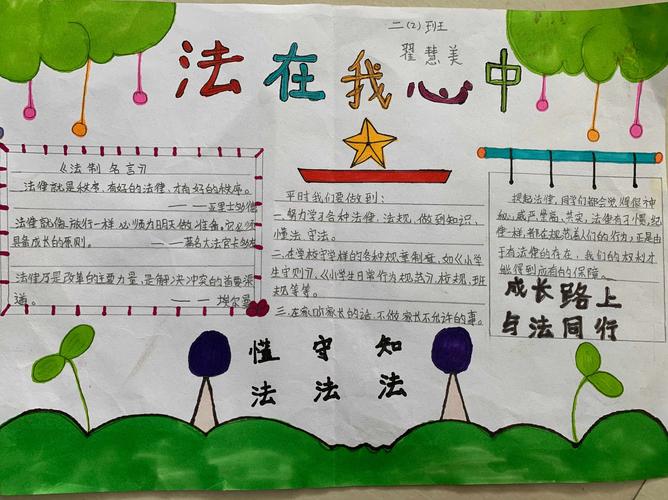 二(2)班
翟慧美
法在我心中
《法制名言》
法律就是秩序,有好的法律,才有好的秩序。
——亚里士多德
法律就像旅行一样,必须为明天做准备。它必须
具备成长的原则。——著名大法官卡多佐
法律乃是改革的主要力量,是解决冲突的首要渠
道。——埃尔曼
平时我们要做到:
一.努力学习各种法律、法规,做到知识、
懂法、守法。
二.在学校守学样的各种规章制度,如《小学
生守则》、《小学生日常行为规范》、校规、班
规等等。
三.在家听家长的话,不做家长不允许的事。
提起法律,同学们都会觉得很神
秘,威严,崇高,其实,法律有不少像纪
律一样,都在规范着人们的行为,正是由
于有法律的存在,我们的权利才
能得到应有的保障。
成长路上
与法同行
懂 守 知
法 法 法